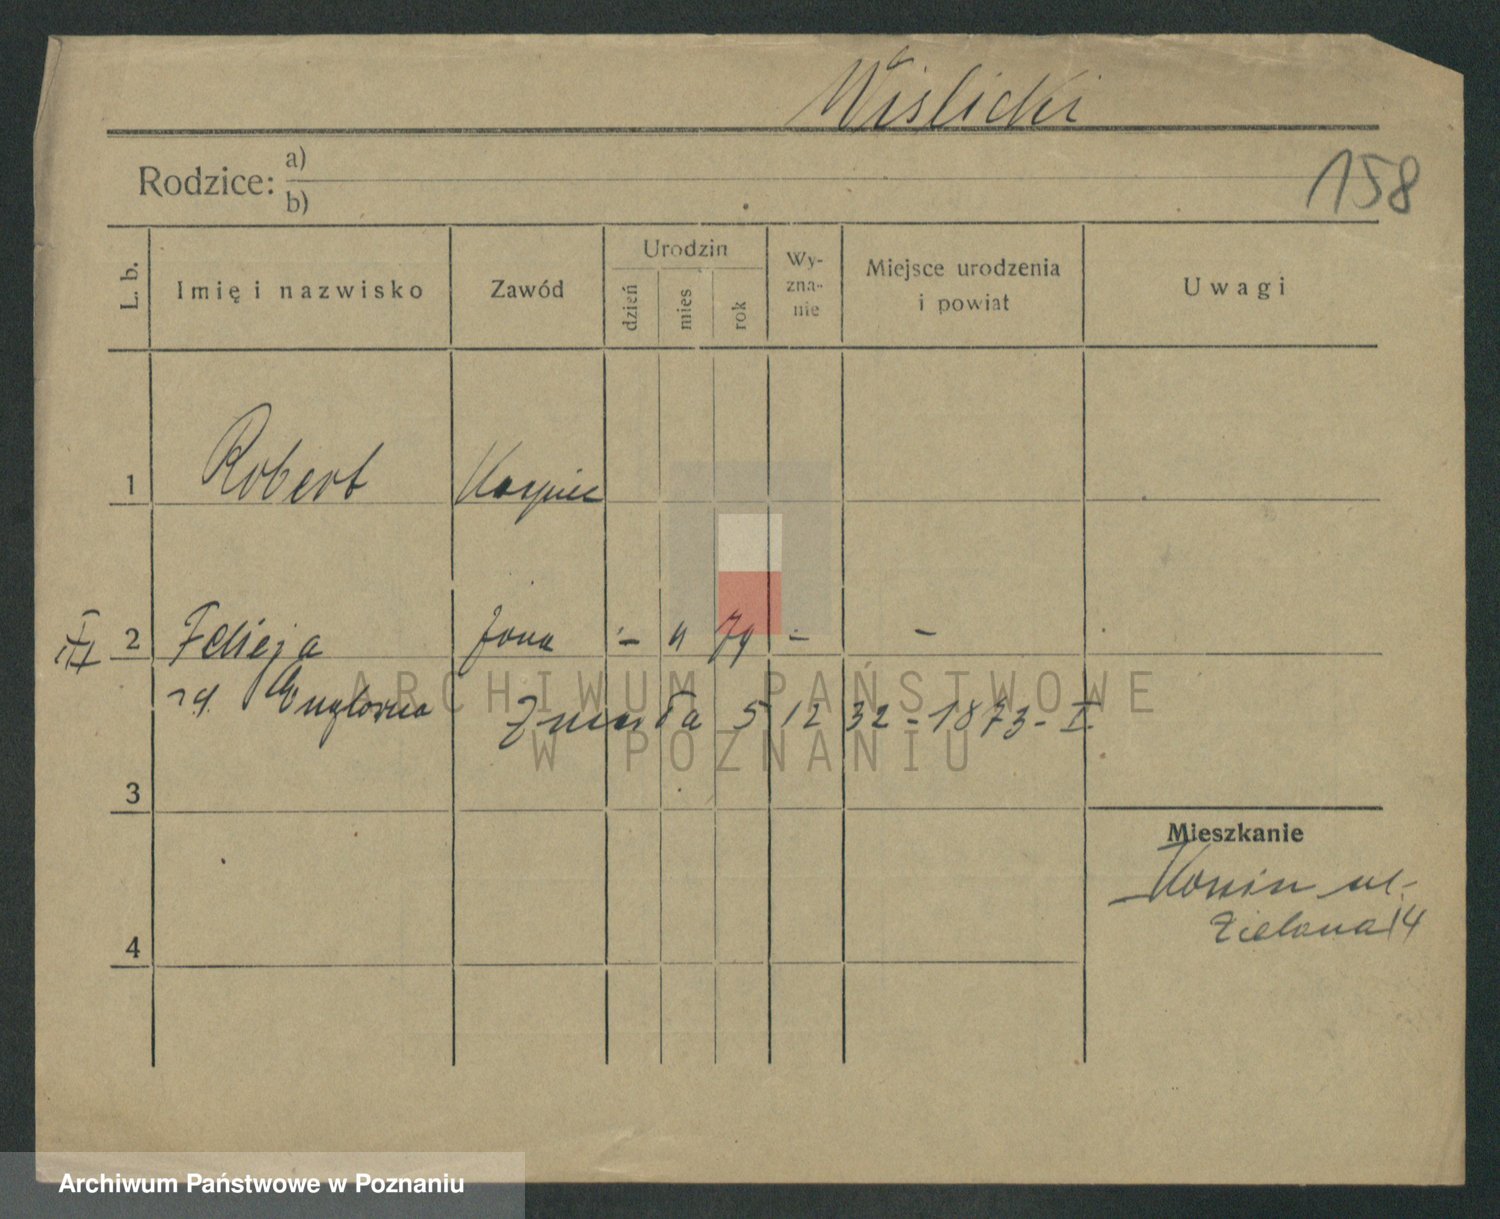 Wiślicki
158
Rodzice: a)
b)
L. b.
Imię i nazwisko
Zawód
Urodzin
dzień
mies
rok
Wy-
zna-
nie
Miejsce urodzenia
i powiat
Uwagi
1 Robert
2 Felicja żona - 4 79 - -
Zmarła 5 12 32 - 1873 - I.
3
Mieszkanie
Konin ul.
Zielona 14
4
ARCHIWUM PAŃSTWOWE
W POZNANIU
Archiwum Państwowe w Poznaniu